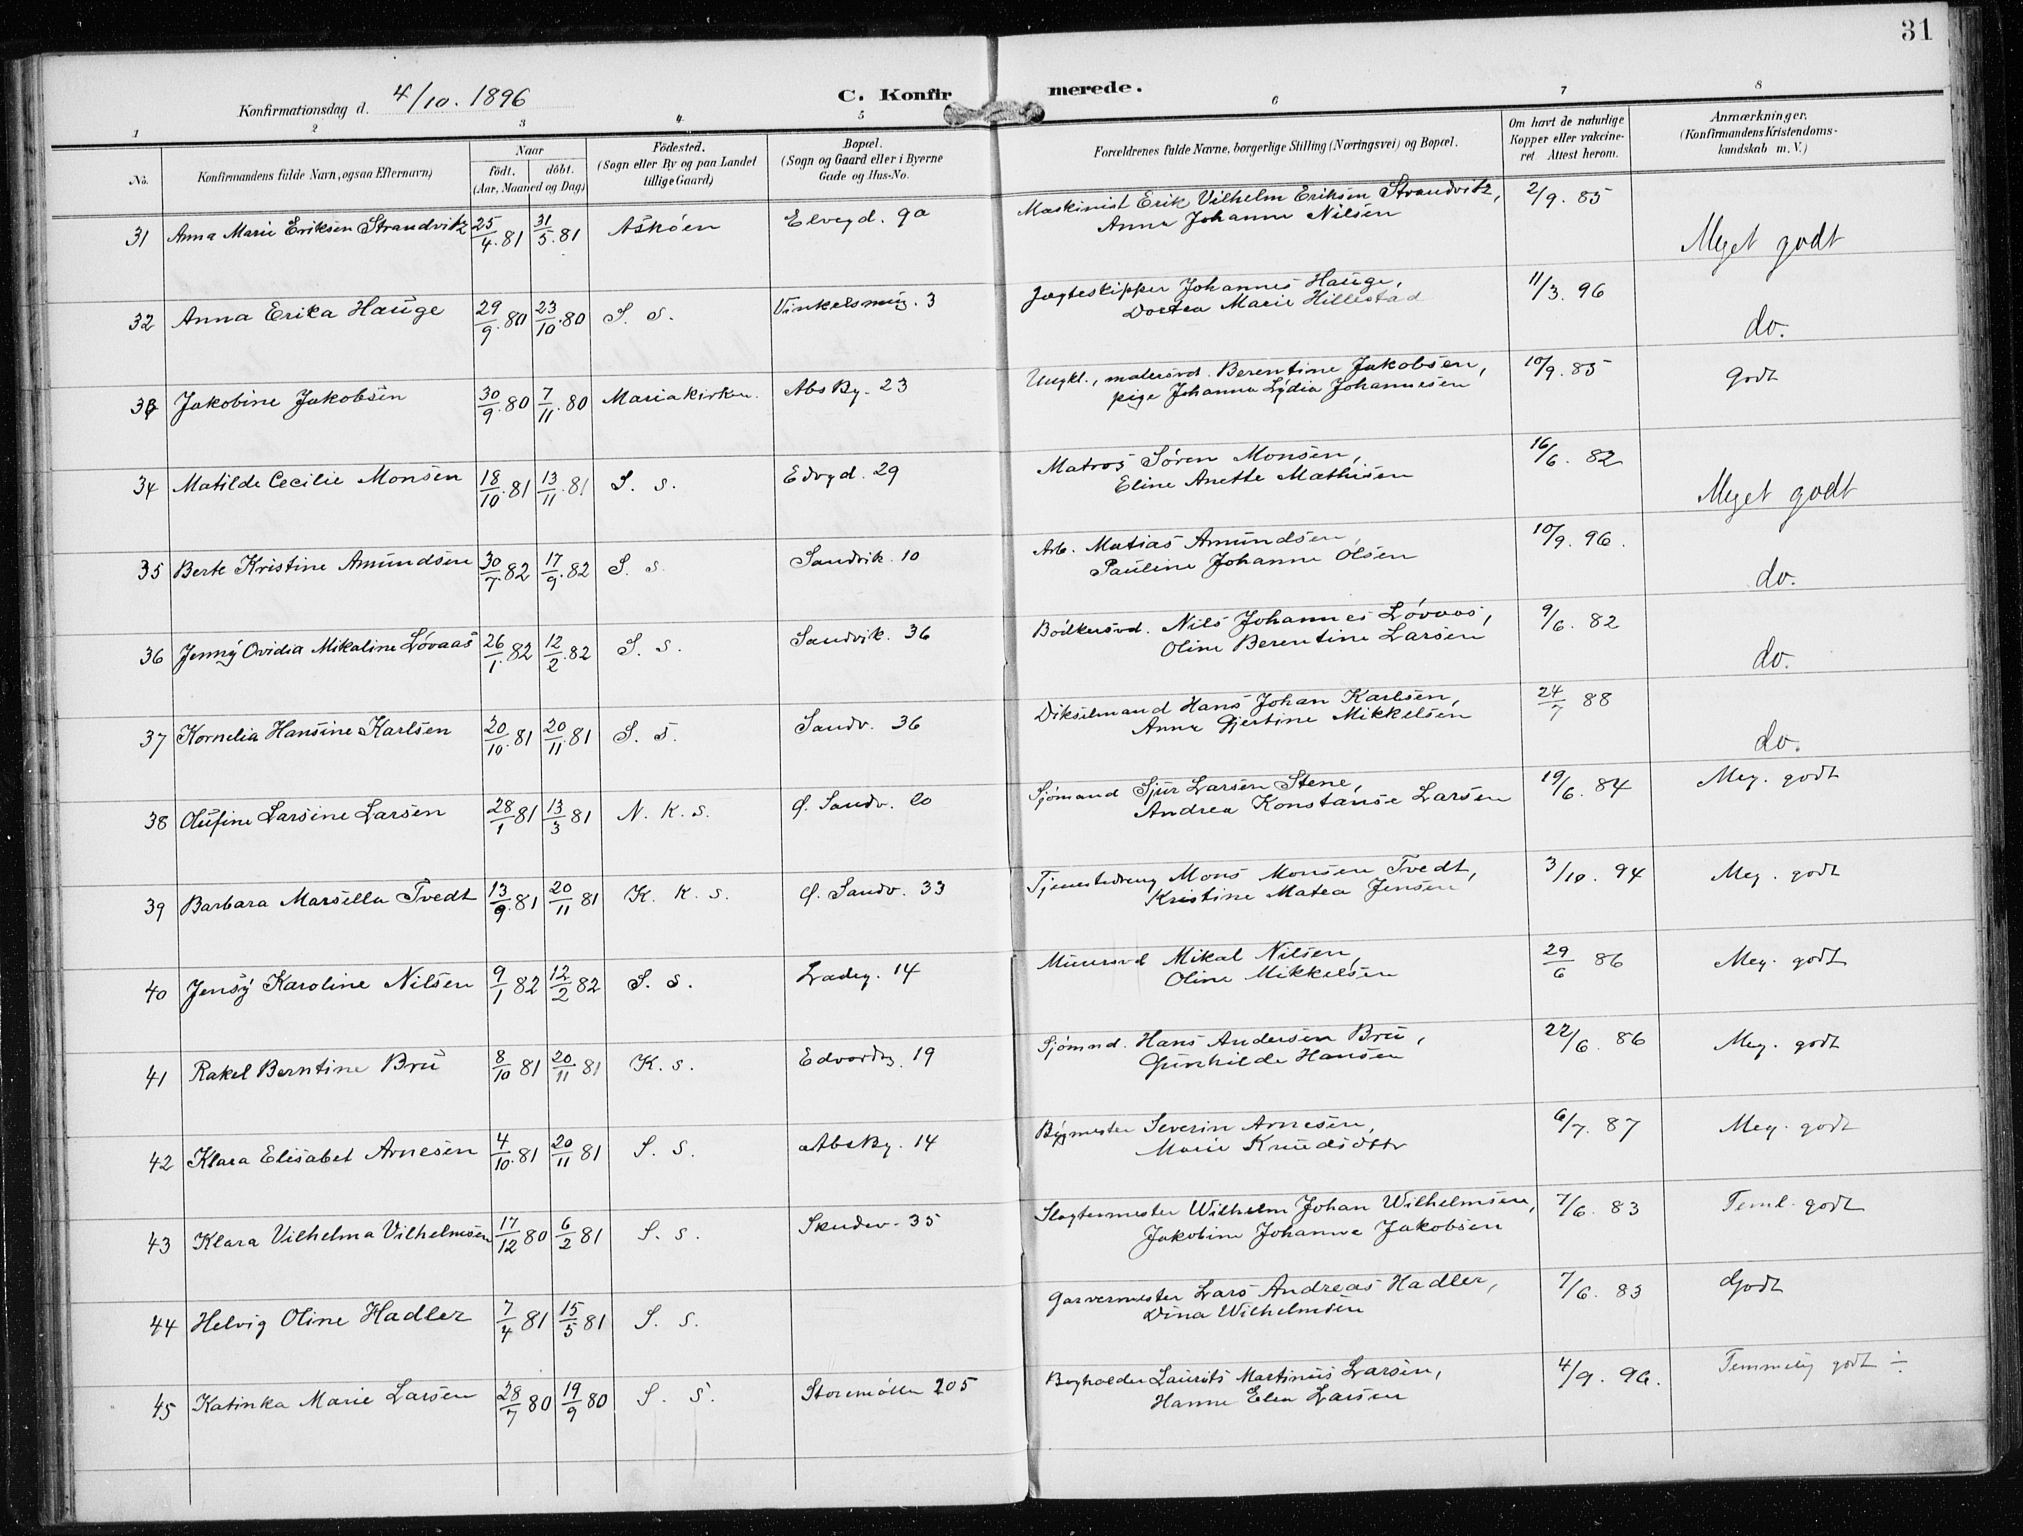 31
Konfirmationsdag d. 4/10. 1896
C. Konfirmerede.
1 2 3 4 5 6 7 8
No. | Konfirmandens fulde Navn, ogsaa Efternavn) | Naar födt. döbt. (Aar, Maaned og Dag) | Födested. (Sogn eller By og paa Landet tillige Gaard) | Bopæl. (Sogn og Gaard eller i Byerne Gade og Hus-No. | Forældrenes fulde Navne, borgerlige Stilling (Næringsvei) og Bopæl. | Om havt de naturlige Kopper eller vaccineret. Attest herom. | Anmærkninger. (Konfirmandens Kristendomskundskab m. V.)
31 Anna Marie Eriksen Strandvik 25/4.81 31/5.81 Askøen Elvegd. 9a Maskinist Erik Vilhelm Eriksen Strandvik, 2/9. 85
Anna Johanne Nilsen Meget godt
32 Anna Erika Hauge 29/9.80 23/10.80 S. s. Vinkelsmug. 3 Jægteskipper Johannes Hauge, 11/3. 96
Dortea Marie Hillestad do.
33 Jakobine Jakobsen 30/9.80 7/11.80 Mariakirken. Abs By. 23 Ungkl., malersvd. Berentine Jakobsen, 10/9. 85 godt
pige Johanna Lydia Johannesen
34 Matilde Cecilie Monsen 18/10.81 13/11.81 S. s. Edvgd. 29 Matros Søren Monsen, 16/6. 82
Eline Anette Mathisen Meget godt
35 Berte Kristine Amundsen 30/7.82 17/9.82 S. s. Sandvik. 10 Arb. Matias Amundsen, 10/9. 96.
Pauline Johanne Olsen do.
36 Jenny Ovidia Mikaline Løvaas 26/1.82 12/2.82 S. s. Sandvik. 36 Bødkersvd. Nils Johannes Løvaas, 9/6. 82
Oline Berentine Larsen do.
37 Kornelia Hansine Karlsen 20/10.81 20/11.81 S. s. Sandv. 36 Dikselmand Hans Johan Karlsen, 24/7 88
Anna Gjertine Mikkelsen do.
38 Olufine Larsine Larsen 28/1 81 13/3 81 N. K. s. Ø. Sandv. 20 Sjømand Sjur Larsen Stene, 19/6. 84 Meg. godt
Andrea Konstanse Larsen
39 Barbara Marsella Tvedt 13/9.81 20/11 81 K. K. s. Ø. Sandv. 33 Tjenestedreng Mons Monsen Tvedt, 3/10. 94 Meg. godt
Kristine Matea Jensen
40 Jensy Karoline Nilsen 9/1 82 12/2 82 S. s. Ladeg. 14 Murersvd Mikal Nilsen, 29/6 86 Meg. godt
Oline Mikkelsen
41 Rakel Berntine Bru 8/10 81 20/11 81 K. s. Edvardsg. 19 Sjømnd. Hans Andersen Bru, 22/6. 86 Meg. godt
Gunhilde Hansen
42 Klara Elisabet Arnesen 4/10.81 20/11 81 S. s. AbsBy. 14 Bygmester Severin Arnesen, 6/7. 87 Meg. godt
Marie Knudsdttr
43 Klara Vilhelma Vilhelmsen 17/12 80 6/2 81 S. s. Skudev. 35 Slagtermester Wilhelm Johan Wilhelmsen, 7/6. 83 Teml. godt
Jakobine Johanne Jakobsen
44 Helvig Oline Hadler 7/4 81 15/5 81 S. s. Garvermester Lars Andreas Hadler, 7/6. 83 Godt
Dina Wilhelmsen
45 Katinka Marie Larsen 28/7 80 19/9 80 S. s. Storemølle 205 Bogholder Laurits Martinus Larsen, 4/9. 96. Temmelig godt ÷
Hanne Elen Larsen